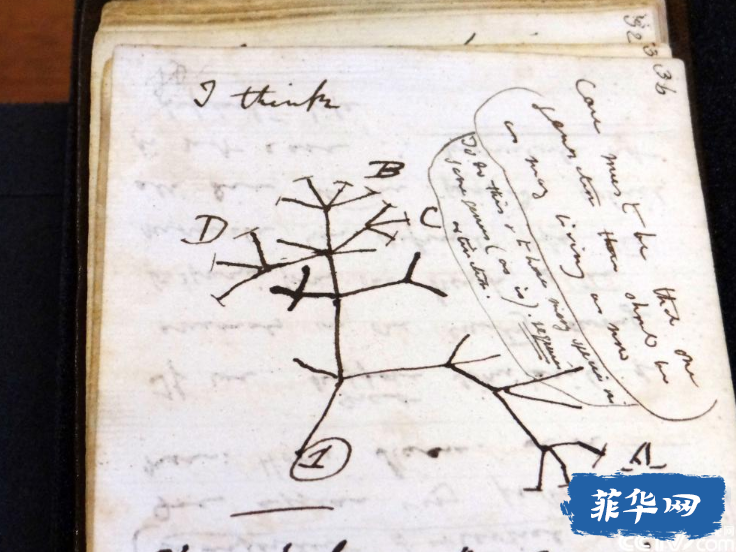 36
I think
Case must be that one
generation then should be
as many living as now
To do this & to have many species in
same genus (as is). requires
extinction.
B
C
D
A
1
菲华网